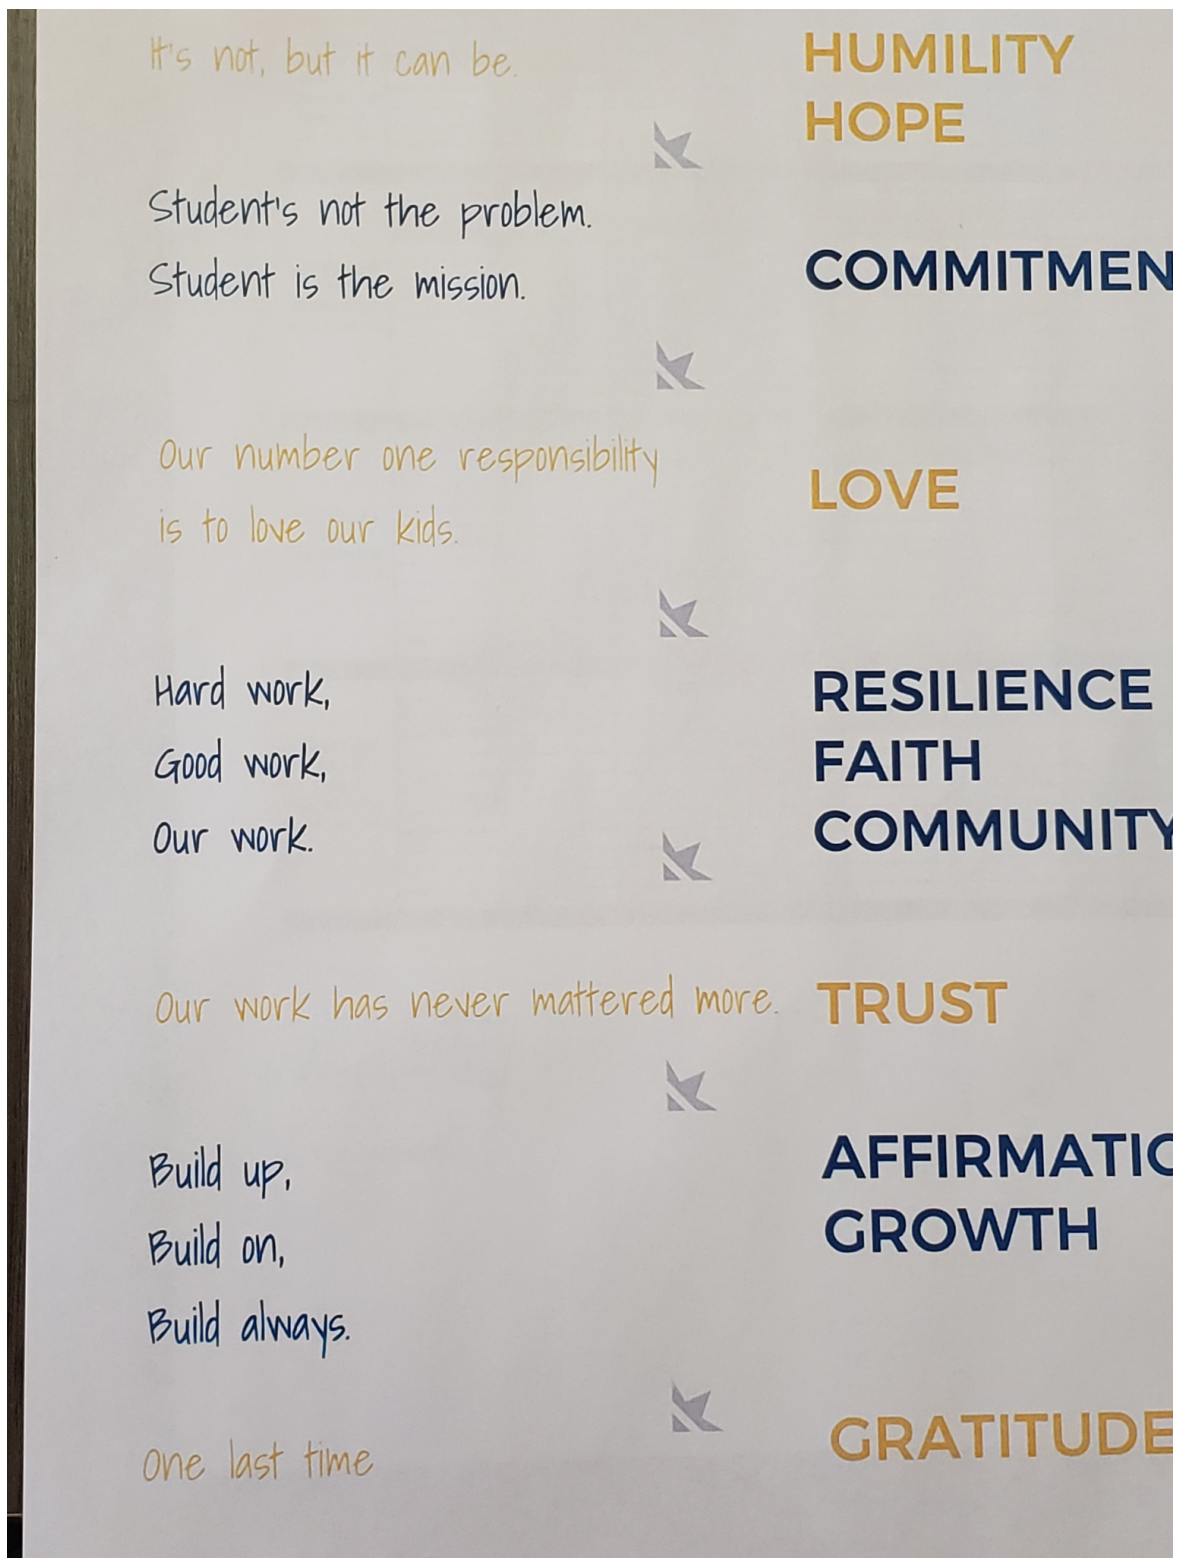 It's not, but it can be.
HUMILITY
HOPE
Student's not the problem.
Student is the mission.
COMMITMEN
Our number one responsibility
is to love our kids.
LOVE
Hard work,
Good work,
Our work.
RESILIENCE
FAITH
COMMUNITY
Our work has never mattered more.
TRUST
Build up,
Build on,
Build always.
AFFIRMATIO
GROWTH
One last time
GRATITUDE